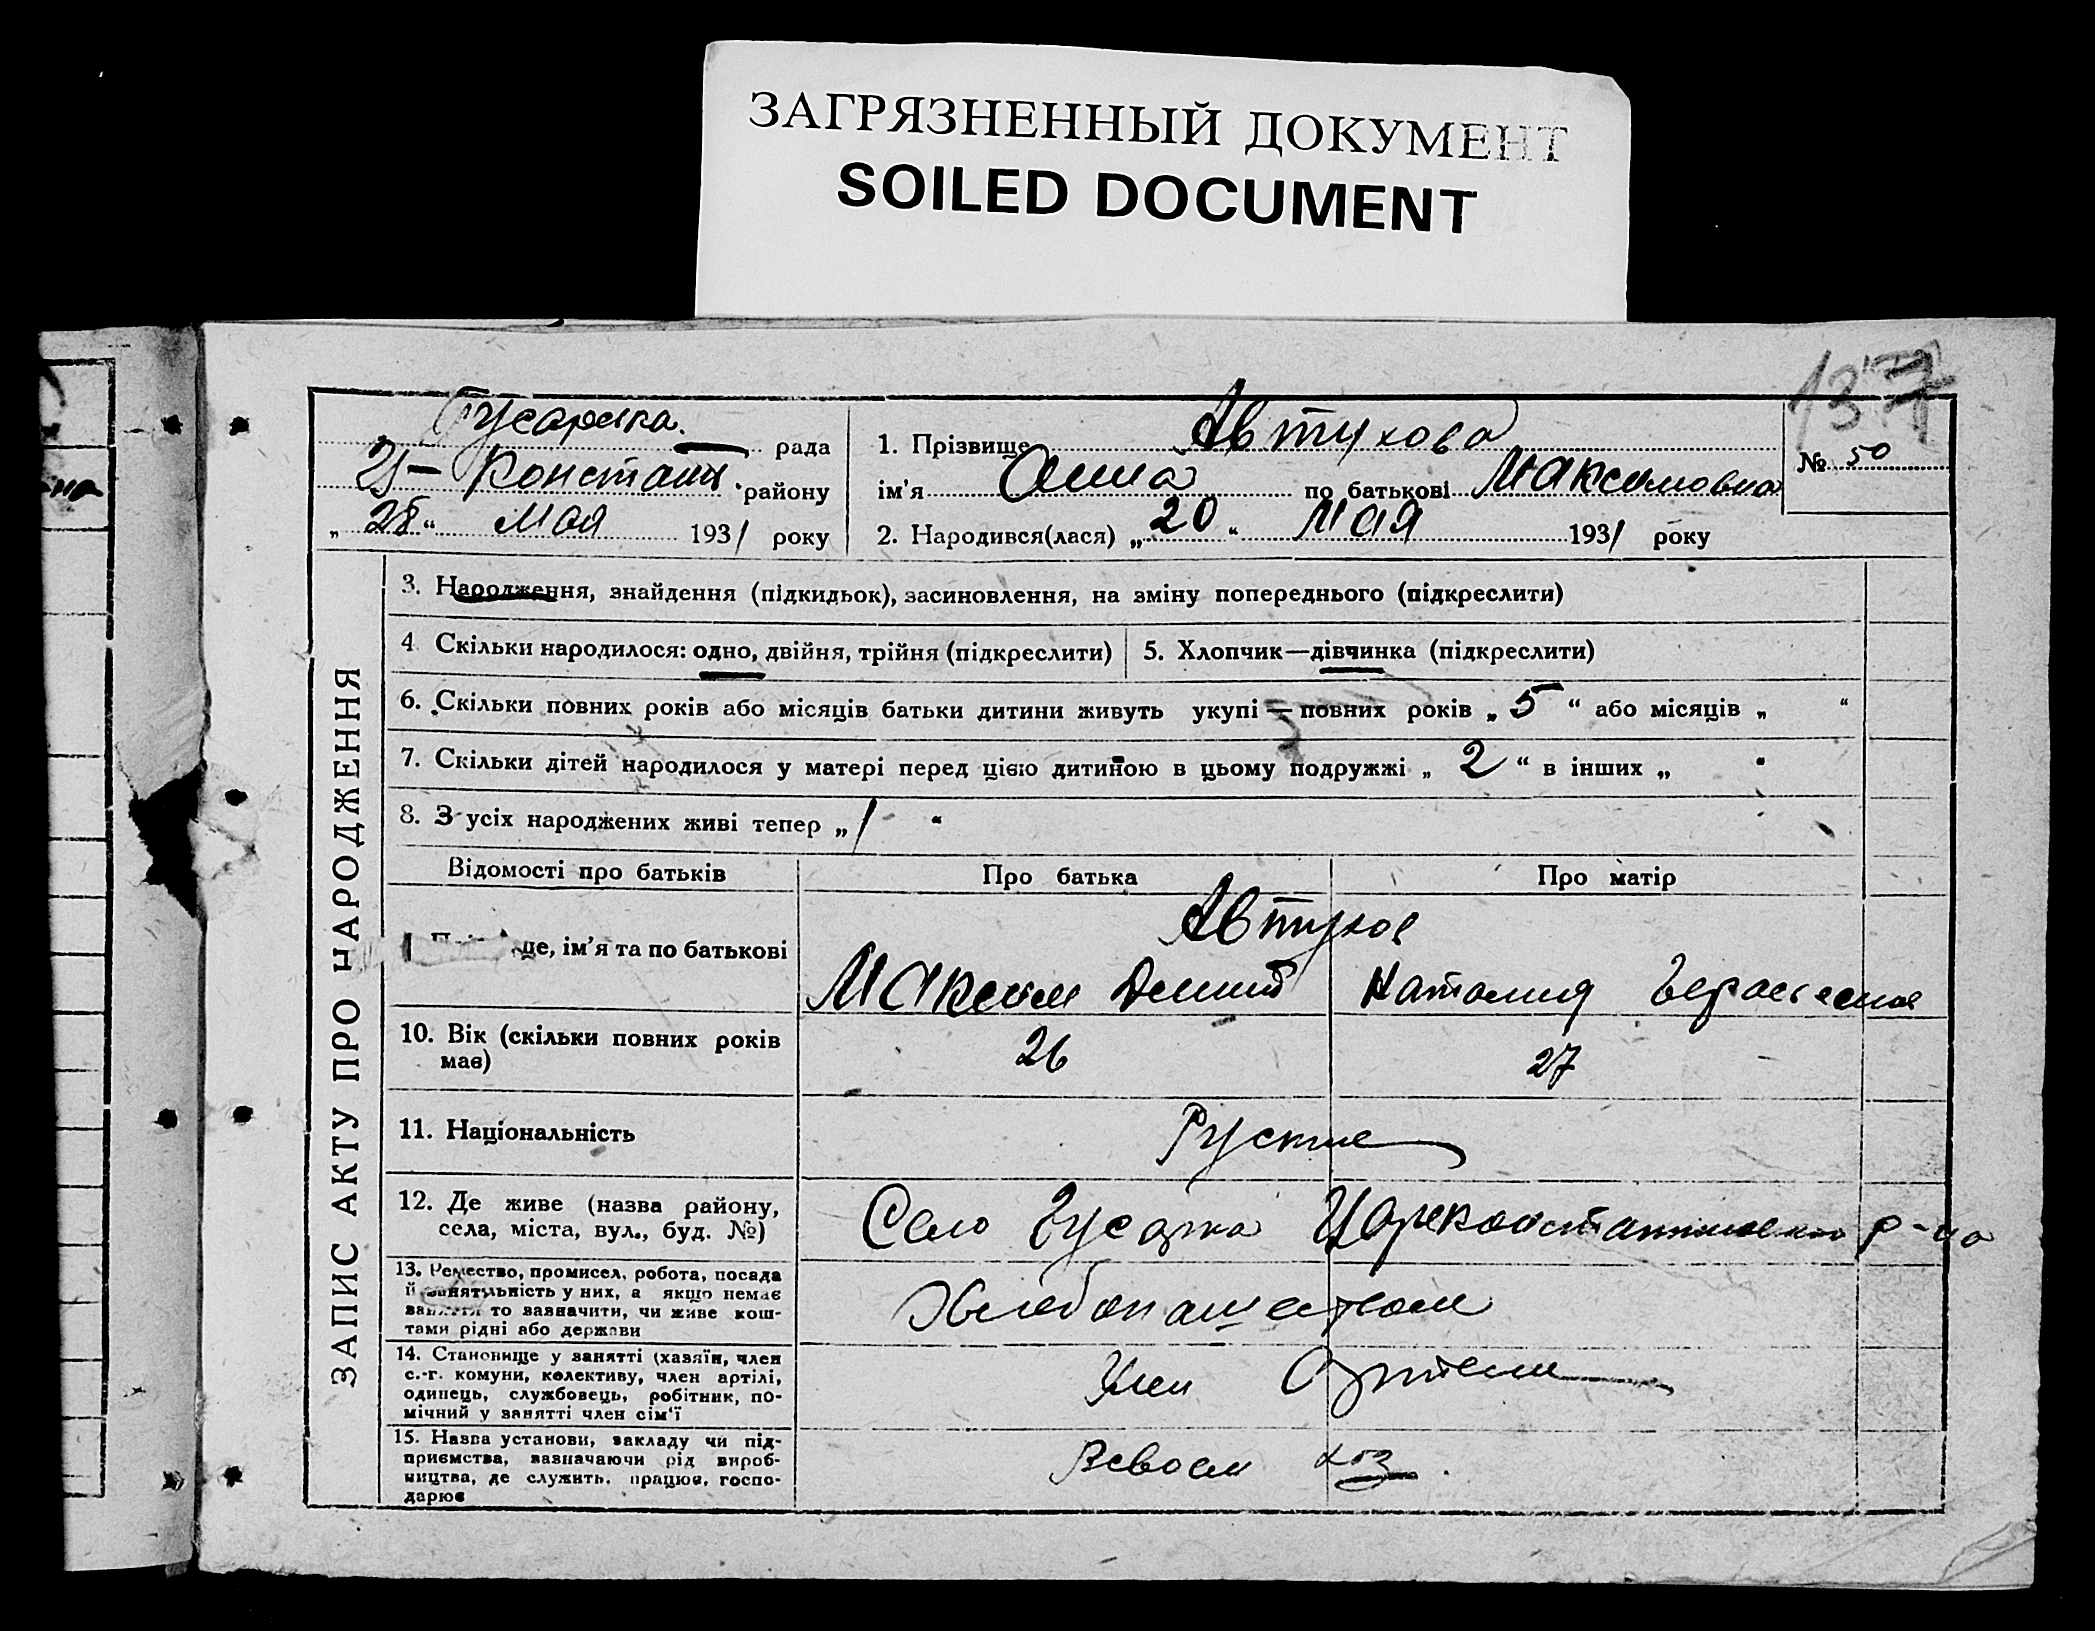 ЗАГРЯЗНЕННЫЙ ДОКУМЕНТ
SOILED DOCUMENT
137
Гусарска. рада
Констант. району
„ 28 “ мая 1931 року
1. Прізвище Автухова
ім’я Анна по батькові Максимовна
2. Народився(лася) „ 20 “ мая 1931 року
№ 50
ЗАПИС АКТУ ПРО НАРОДЖЕННЯ
3. Народження, знайдення (підкидьок), засиновлення, на зміну попереднього (підкреслити)
4 Скільки народилося: одно, двійня, трійня (підкреслити)
5. Хлопчик—дівчинка (підкреслити)
6. Скільки повних років або місяців батьки дитини живуть укупі — повних років „ 5 “ або місяців „ “
7. Скільки дітей народилося у матері перед цією дитиною в цьому подружжі „ 2 “ в інших „ “
8. З усіх народжених живі тепер „ 1 “
Відомості про батьків Про батька Про матір
ім’я та по батькові
Автухов
Максим Наталия
10. Вік (скільки повних років
має)
26 27
11. Національність
Руские
12. Де живе (назва району,
села, міста, вул., буд. №)
Село Гусарка Цареконстантиновского р-на
13. Ремество, промисел, робота, посада
й занятьність у них, а якщо немає
заняття то зазначити, чи живе кош-
тами рідні або держави
Хлебопашеством
14. Становище у занятті (хазяїн, член
с.-г. комуни, колективу, член артілі,
одинець, службовець, робітник, по-
мічний у занятті член сім’ї
Член Артели
15. Назва установи, закладу чи під-
приємства, вазначаючи рід вироб-
ництва, де служить, працює, госпо-
дарює
Всвоем хоз.